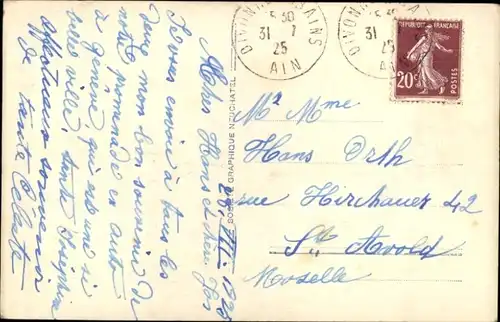 DIVONNE-LES-BAINS
5 30
31 7
25
AIN
DIVONNE
5 30
31
25
AIN
REPUBLIQUE FRANCAISE
20c
POSTES
SOCIÉTÉ GRAPHIQUE NEUCHATEL
28. VII. 1925
Mes chers Hans et
Je vous envoie à tous les
deux mon bon souvenir de
notre promenade en auto
à Genève, qui est une si
belle ville, tante Joséphine
Affectueux souvenir
de tante Céleste
Mr Mme
Hans Orth
rue Hirchauer 42
St Avold
Moselle